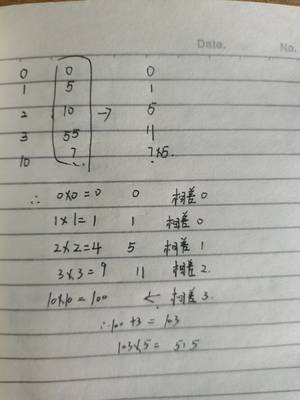 Date. No.
0 0 0
1 5 1
2 10 → 5
3 55 11
10 ? ?×5
∴ 0×0=0 0 相差0
1×1=1 1 相差0
2×2=4 5 相差1
3×3=9 11 相差2.
10×10=100 < 相差3.
∴100+3=103
103×5=515